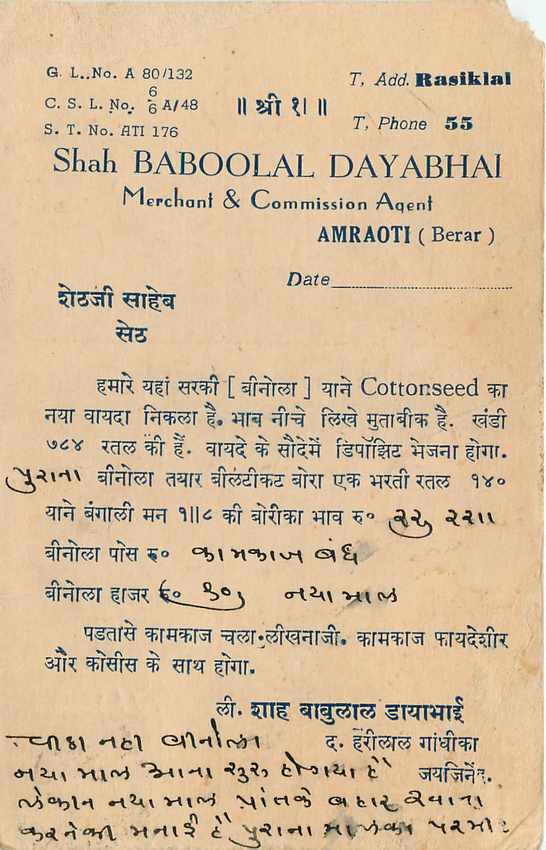 G. L..No. A 80/132
T, Add. Rasiklal
C. S. L. No. 6/6 A/48
॥ श्री १। ॥
S. T. No. ATI 176
T, Phone 55
Shah BABOOLAL DAYABHAI
Merchant & Commission Agent
AMRAOTI ( Berar )
Date
शेठजी साहेब
सेठ
हमारे यहां सरकी [ बीनोला ] याने Cottonseed का
नया वायदा निकला है. भाब नीचे लिखे मुताबीक है. खंडी
७८४ रतल की हैं. वायदे के सौदेमें डिपॉझिट भेजना होगा.
પુરાના बीनोला तयार बीलटीकट बोरा एक भरती रतल १४०
याने बंगाली मन १॥८ की बोरीका भाव रु० ૨૨૧૧
बीनोला पोस रू० કામકાજ બંધ
बीनोला हाजर રૂ૦ નયા માલ
पडतासे कामकाज चला लीखनाजी. कामकाज फायदेशीर
और कोसीस के साथ होगा.
ली. शाह बाबुलाल डायाभाई
નહી બીનોલા द. हॅरीलाल गांधीका
નયા માલ આના શુરુ હોગયા હૈ जयजिनेंद्र.
લેકીન નયા માલ પ્રાંતકે બહાર રવાના
કરનેકી મનાઈ હૈ પુરાના માલકા